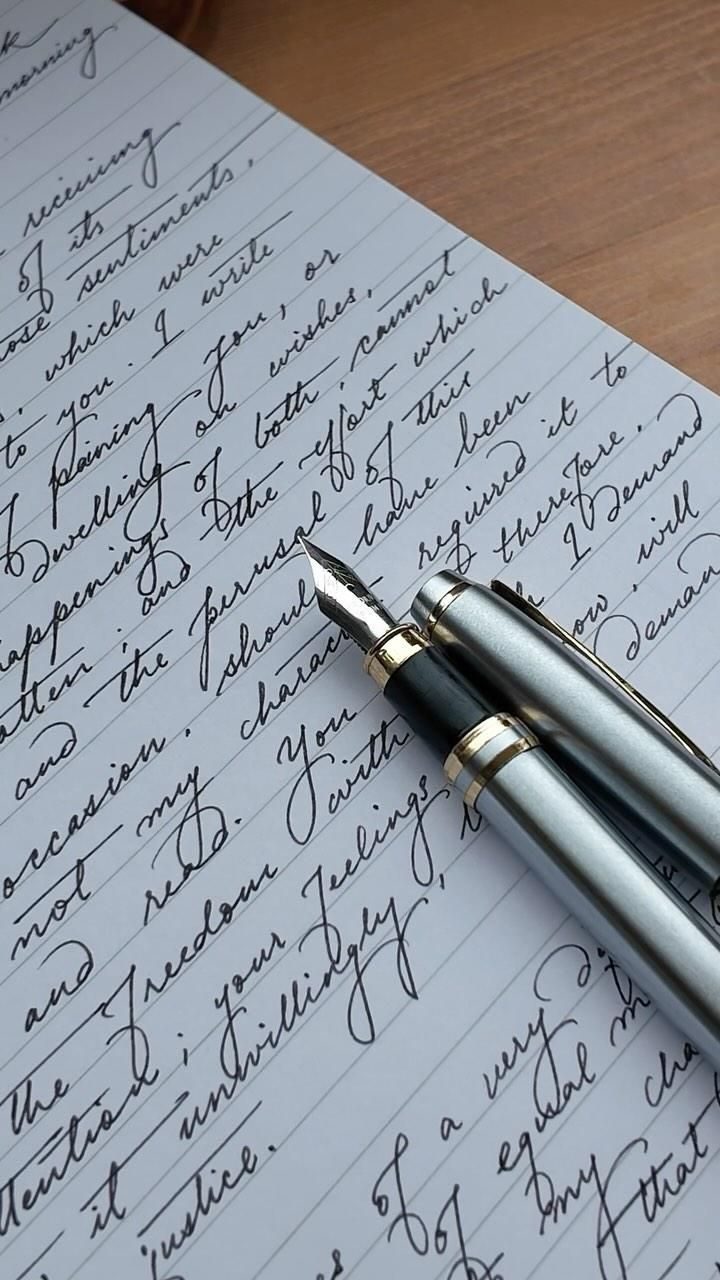 morning
receiving
of its
ose sentiments,
which were
to you. I write
paining you, or
Dwelling on wishes,
happenings of both, cannot
atten; and the effort which
and the perusal of this
occasion. should have been
not my charac required it to
and read. You therefore.
the freedom with I Demand
ttention; your feelings, ow, will
it unwillingly, deman
justice.
of a very
of equal m
my cha
that